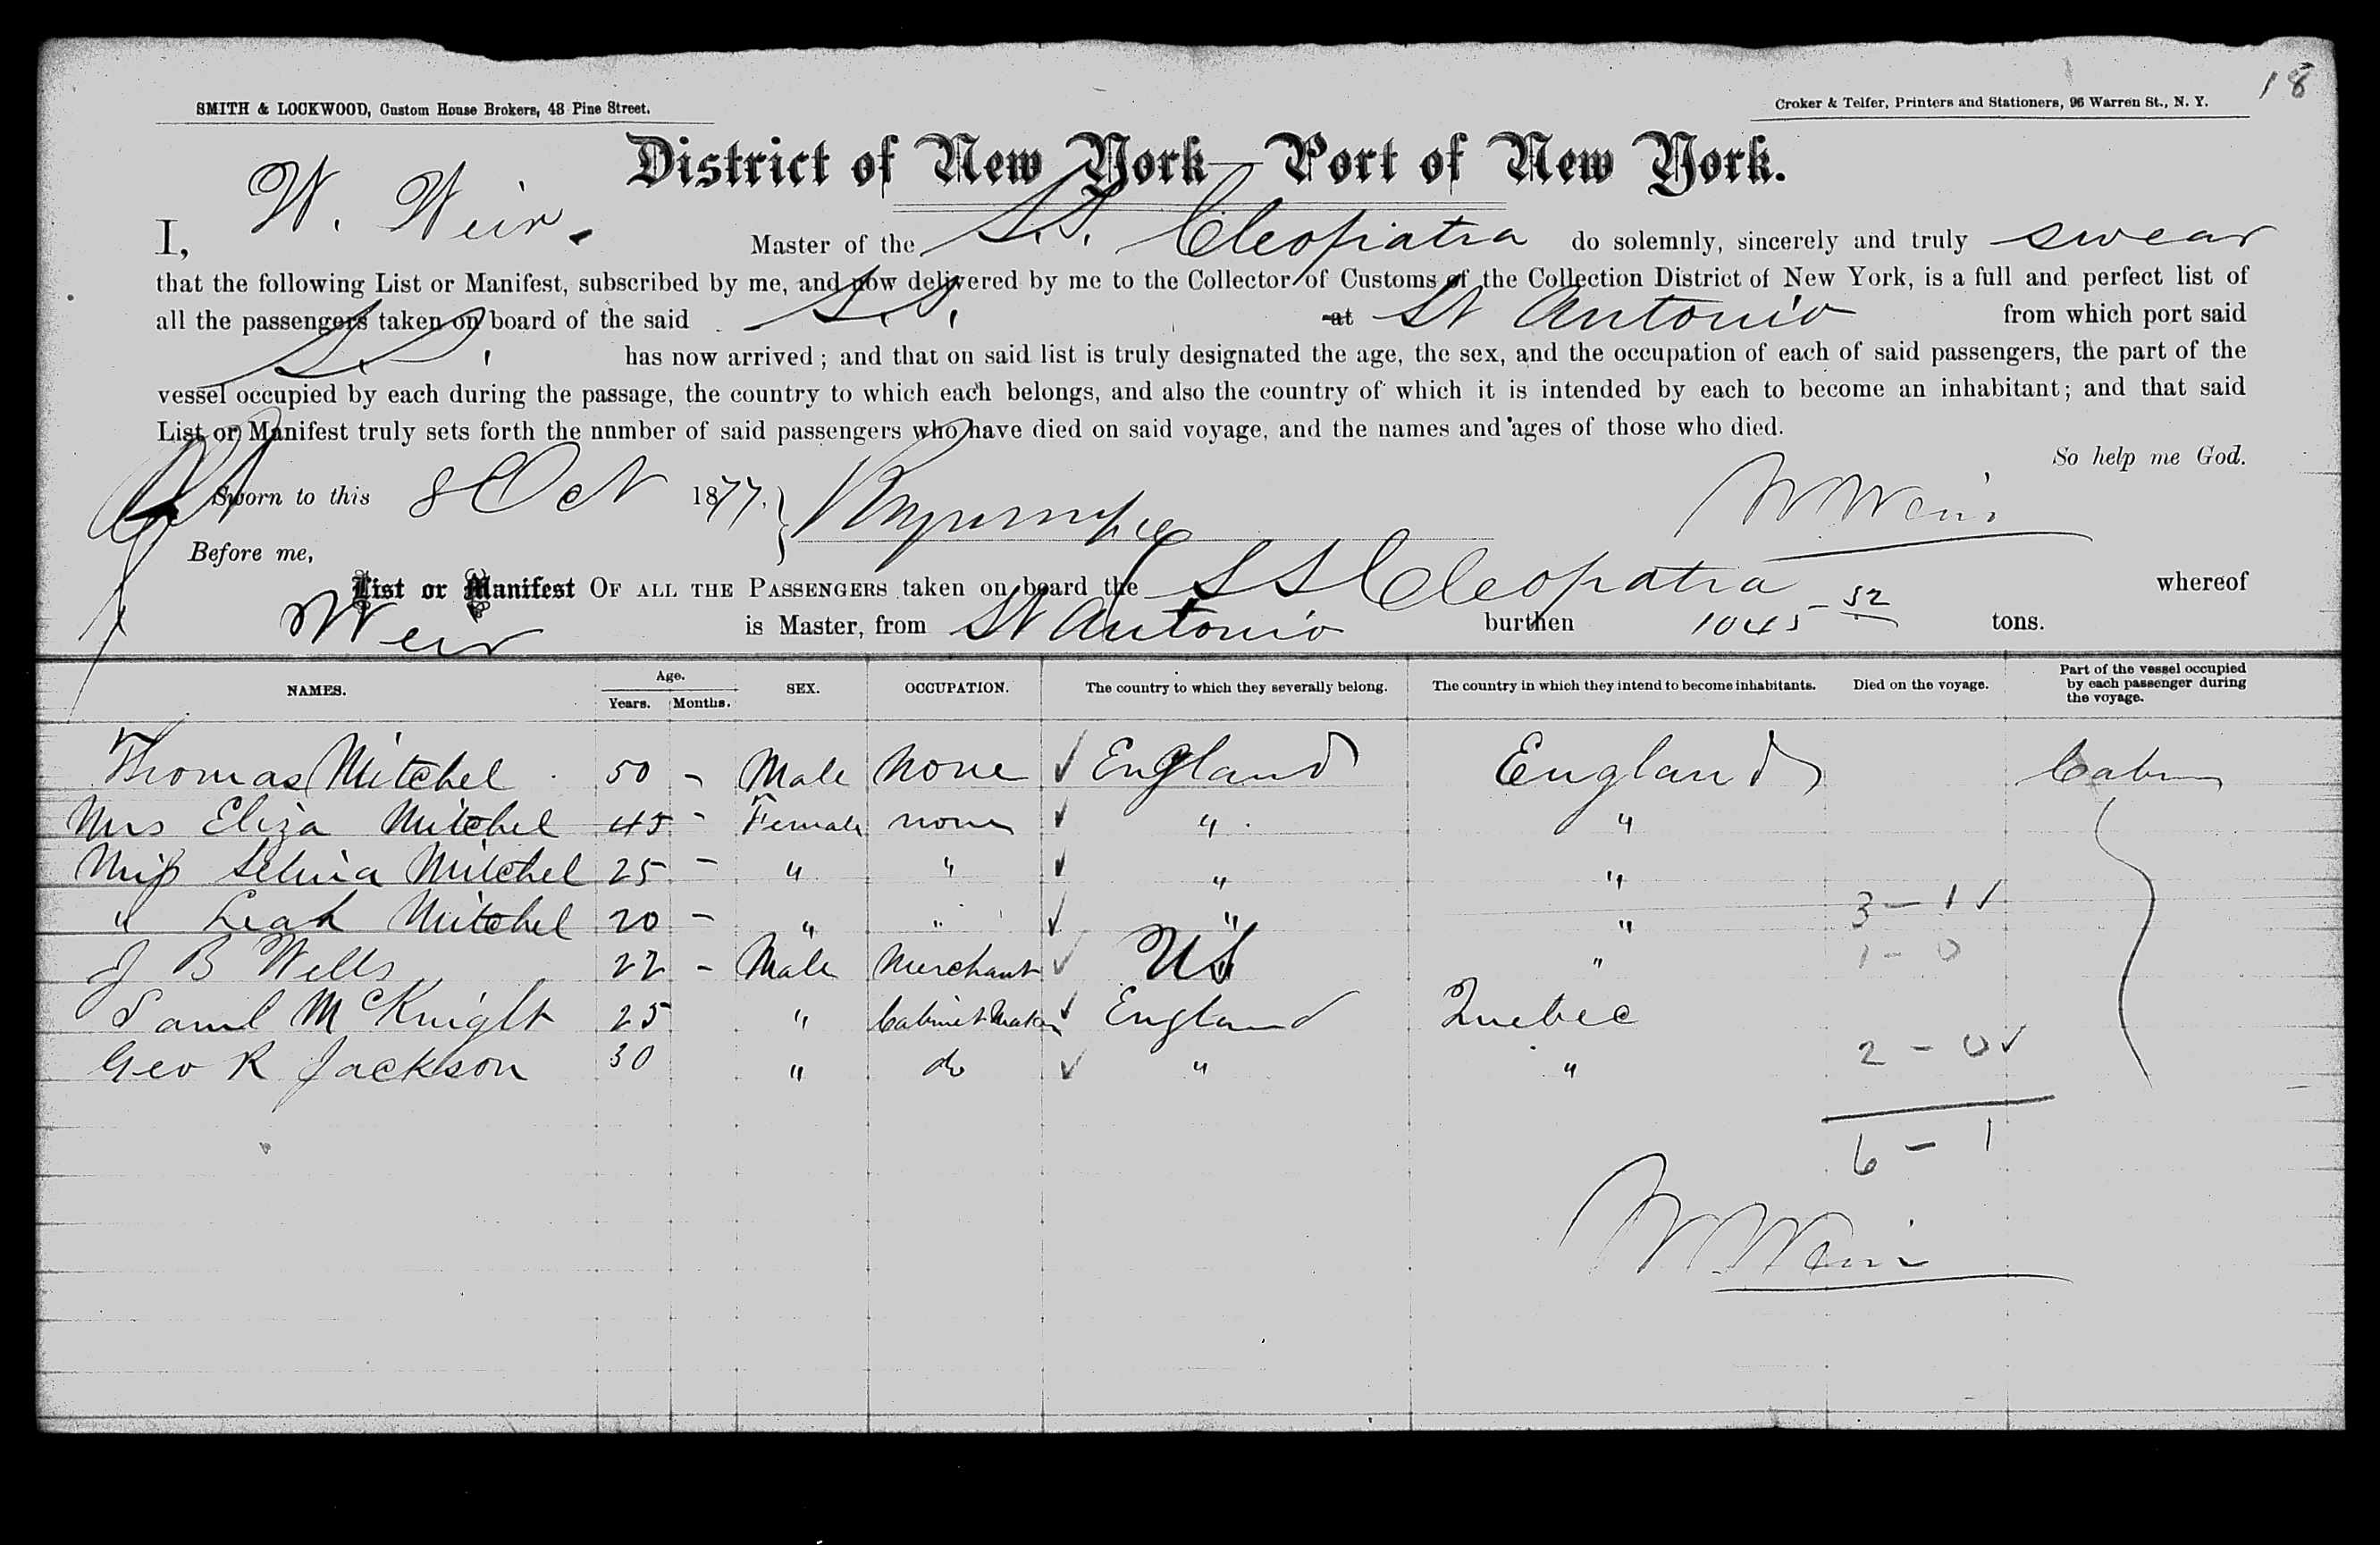 18
SMITH & LOCKWOOD, Custom House Brokers, 48 Pine Street.
Croker & Telfer, Printers and Stationers, 96 Warren St., N. Y.
District of New York—Port of New York.
I, W. Weir. Master of the S.S. Cleopatra do solemnly, sincerely and truly swear
that the following List or Manifest, subscribed by me, and now delivered by me to the Collector of Customs of the Collection District of New York, is a full and perfect list of
all the passengers taken on board of the said S.S. at St Antonio from which port said
S.S. has now arrived; and that on said list is truly designated the age, the sex, and the occupation of each of said passengers, the part of the
vessel occupied by each during the passage, the country to which each belongs, and also the country of which it is intended by each to become an inhabitant; and that said
List or Manifest truly sets forth the nnmber of said passengers who have died on said voyage, and the names and ages of those who died.
So help me God.
Sworn to this 8 Oct 1877. W Weir
Before me,
List or Manifest OF ALL THE PASSENGERS taken on board the SS Cleopatra whereof
Weir is Master, from St Antonio burthen 1045 - 52 tons.
NAMES. Age. Years. Months. SEX. OCCUPATION. The country to which they severally belong. The country in which they intend to become inhabitants. Died on the voyage. Part of the vessel occupied by each passenger during the voyage.
Thomas Mitchel 50 - Male None ✓ England England Cabin
Mrs Eliza Mitchel 45 - Female none ✓ " "
Miss Selina Mitchel 25 - " " ✓ " "
" Leah Mitchel 20 - " " ✓ " " 3 - 1 ✓
J B Wells 22 - Male Merchant ✓ US " 1 - 0
Saml McKnight 25 " Cabinet Maker ✓ England Quebec
Geo R Jackson 30 " do ✓ " " 2 - 0 ✓
6 - 1
W. Weir